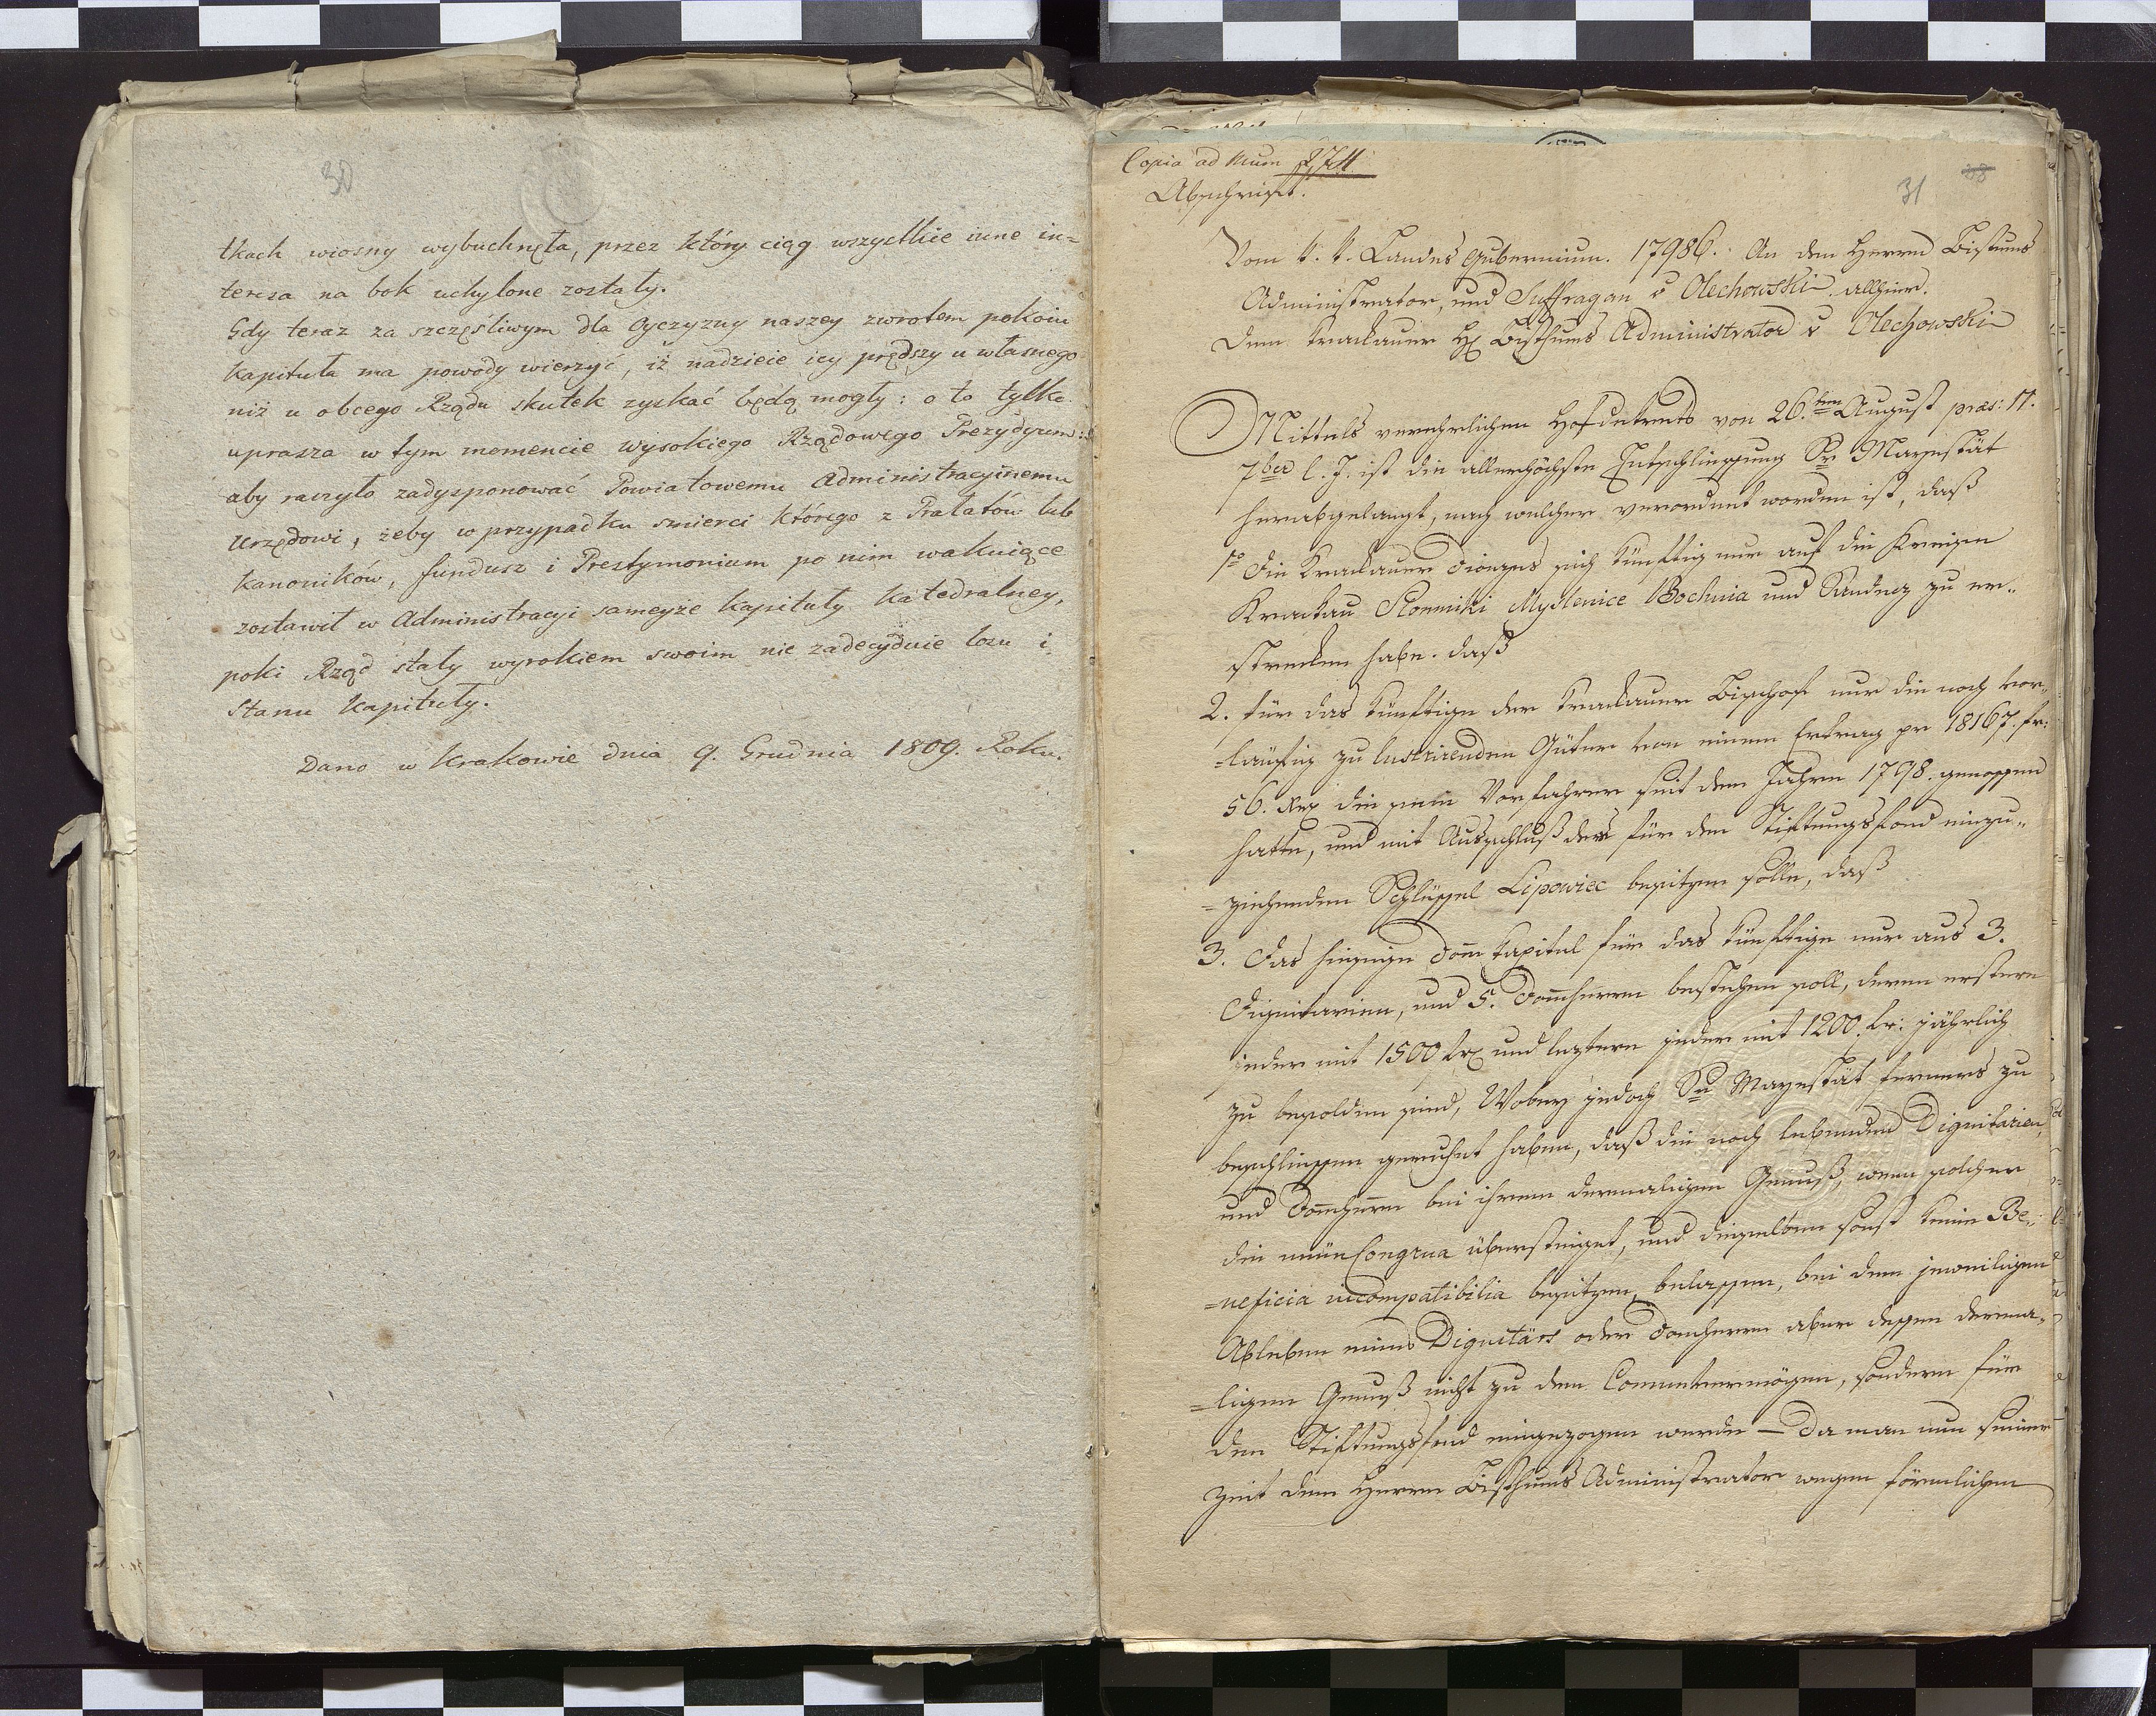 30
tkach wiosny wybuchnęła, przez który ciąg wszystkie inne in=
teresa na bok uchylone zostały.
Gdy teraz za szczęśliwym dla Oyczyzny naszey zwrotem pokoiu
Kapituła ma powody wierzyć, iż nadzieie iey prędszy u własnego
niż u obcego Rządu skutek zyskać będą mogły: o to tylko
uprasza w tym momencie wysokiego Rządowego Prezydyum:
aby raczyło zadysponować Powiatowemu Administracyinemu
Urzędowi, żeby w przypadku smierci którego z Prałatów lub
Kanoników, fundusz i Prestymonium po nim wakuiące
zostawił w Administracyi sameyże Kapituły Katedralney,
poki Rząd stały wyrokiem swoim nie zadecyduie losu i
Stanu Kapituły.
Dano w Krakowie dnia 9. Grudnia 1809. Roku.
Copia ad Num
Abschrift.
31
Vom k. k. Landes Gubernium. 17986. An den Herrn Bistums
Administrator, und Suffragan v Olechowski allhier.
Dem Krackauer H Bisthums Administrator v Olechowski
Mittels verehrlichen Hofdekrets von 26.ten August praes: 11.
7ber l. J. ist die allerhöchste Entschliessung Sr Mayestät
herabgelangt, nach welcher verordnet worden ist, daß
1o die Krackauer Diözes sich künftig nur auf die Kreise
Krackau Slomniki Myslenice Bochnia und Sandez zu er„
strecken habe. daß
2. für das künftige der Krackauer Bischof nur die noch vor„
=läufig zu lustrirenden Güter von einem Ertrag pr 18167. fr:
56. Kr die sein Vorfahrer seit dem Jahre 1798. genossen
hatte, und mit Ausschluß des für den Stiftungsfond einzu„
=ziehenden Schlüssel Lipowiec besitzen solle, daß
3. das hiesige Domkapitel für das künftige nur aus 3.
Dignitarien, und 5. Domherren bestehen soll, deren erstere
jeder mit 1500 fr und leztere jeder mit 1200. fr: jährlich
zu besolden sind, Wobey jedoch Se Mayestät ferners zu
beschliessen geruhet haben, daß die noch lebenden Dignitarien,
und Domherrn bei ihrem dermaligen Genuß, wenn solcher
die neue Congrua übersteiget, und dieselben sonst keine Be„
=neficia incompatibilia besitzen, belassen, bei dem jeweiligen
Ableben eines Dignitärs oder Domherrn aber dessen derma„
=ligen Genuß nicht zu dem Communvermögen, sondern für
den Stiftungsfond eingezogen werde — Da man nun seiner
Zeit dem Herrn Bisthums Administrator wegen förmlichen